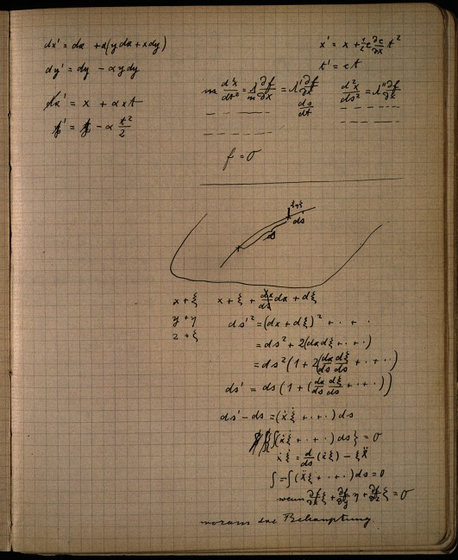 dx' = dx + α(y dx + x dy)
dy' = dy − α y dy
x' = x + α x t
y' = y − α t²/2
x' = x + ½ c ∂c/∂x t²
t' = ct
m d²x/dt² = λ/m ∂f/∂x = λ' ∂f/∂x
ds/dt
d²x/ds² = λ'' ∂f/∂x
f = 0
ds'
ds
x + ξ
x + ξ + dx/ds ds + dξ
y + η
z + ζ
ds'² = (dx + dξ)² + · + ·
= ds² + 2(dx dξ + · + ·)
= ds² (1 + 2(dx/ds dξ/ds + · + ·))
ds' = ds (1 + (dx/ds dξ/ds + · + ·))
ds' − ds = (ẋ ξ̇ + · + ·) ds
∫(ẋ ξ̇ + · + ·) ds} = 0
ẋ ξ̇ = d/ds (ẋ ξ) − ξ ẍ
∫ = −∫(ẍ ξ + · + ·) ds = 0
wenn ∂f/∂x ξ + ∂f/∂y η + ∂f/∂z ζ = 0
woraus die Behauptung.